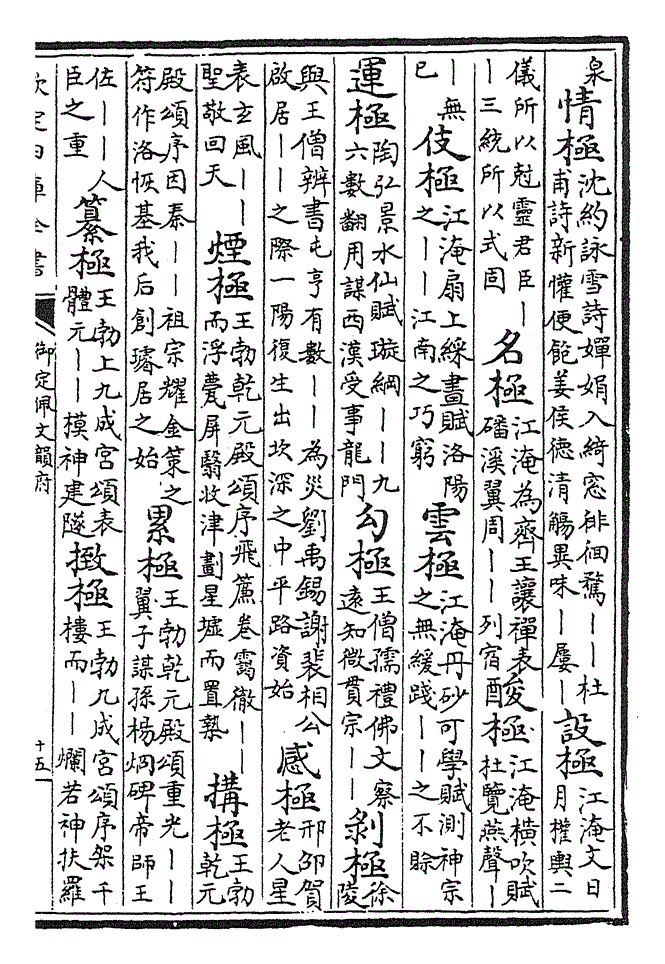 泉情極沈約詠雪詩嬋娟入綺窓徘徊鶩——杜甫詩新懽便飽姜侯德清觴異味—屢—設極江淹文日月權輿二
儀所以尅靈君臣——三統所以式固名極江淹為齊王讓禪表磻溪翼周——列宿酸極江淹橫吹賦杜覽燕聲—
—無已伎極江淹扇上綵畫賦洛陽之——江南之巧窮雲極江淹丹砂可學賦測神宗之無緩踐——之不賒
運極陶弘景水仙賦璇綱——九六數翻用謀西漢受事龍門勾極王僧孺禮佛文察遠知微貫宗——剝極徐陵
與王僧辨書屯亨有數——為災劉禹錫謝裴相公啟居——之際一陽復生出坎深之中平路資始感極邢卲賀老人星
表玄風——聖敬回天煙極王勃乾元殿頌序飛簾卷靄徹——而浮甍屏翳收津劃星墟而置臬構極王勃乾元
殿頌序因秦——祖宗耀金策之符作洛恢基我后創璿居之始累極王勃乾元殿頌重光——翼子謀孫楊炯碑帝師王
佐——人臣之重纂極王勃上九成宮頌表體元——模神建隧緻極王勃九成宮頌序架千樓而——爛若神扶羅
欽定四庫全書
御定佩文韻府
十五